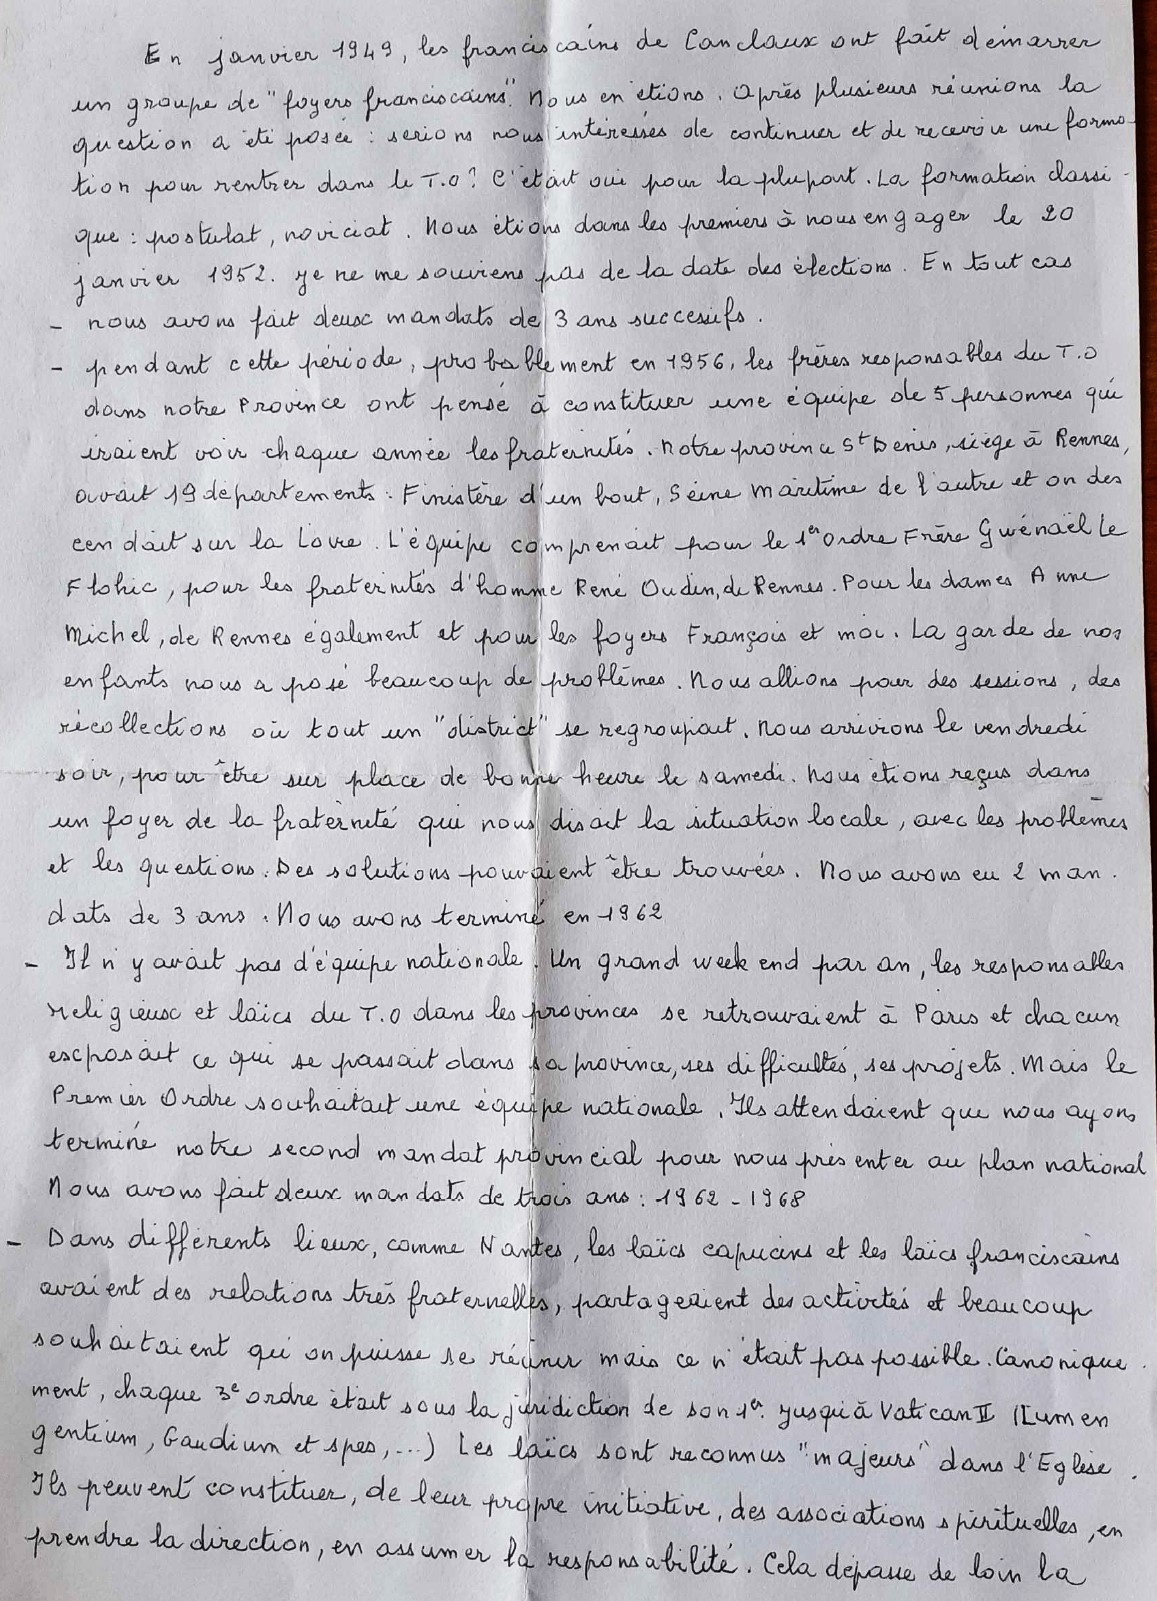 En janvier 1949, les franciscains de Canclaux ont fait démarrer
un groupe de "foyers franciscains". Nous en étions. Après plusieurs réunions la
question a été posée : serions nous intéressés de continuer et de recevoir une forma-
tion pour rentrer dans le T.O? C'était oui pour la plupart. La formation classi-
que : postulat, noviciat. Nous étions dans les premiers à nous engager le 20
janvier 1952. Je ne me souviens pas de la date des élections. En tout cas
- nous avons fait deux mandats de 3 ans succesifs.
- pendant cette période, probablement en 1956, les frères responsables du T.O
dans notre Province ont pensé à constituer une équipe de 5 personnes qui
iraient voir chaque année les fraternités. Notre province St Denis, siège à Rennes,
avait 19 départements : Finistère d'un bout, Seine Maritime de l'autre et on des
cendait sur la Loire. L'équipe comprenait pour le 1er Ordre Frère Gwénaël Le
Flohic, pour les fraternités d'homme René Oudin, de Rennes. Pour les dames Anne
Michel, de Rennes également et pour les foyers François et moi. La garde de nos
enfants nous a posé beaucoup de problèmes. Nous allions pour des sessions, des
récollections où tout un "district" se regroupait. Nous arrivions le vendredi
soir, pour être sur place de bonne heure le samedi. Nous étions reçus dans
un foyer de la fraternité qui nous disait la situation locale, avec les problèmes
et les questions. Des solutions pouvaient être trouvées. Nous avons eu 2 man.
dats de 3 ans. Nous avons terminé en 1962
- Il n'y avait pas d'équipe nationale. Un grand week end par an, les responsables
religieux et laïcs du T.O dans les provinces se retrouvaient à Paris et chacun
exposait ce qui se passait dans sa province, ses difficultés, ses projets. Mais le
Premier Ordre souhaitait une équipe nationale. Ils attendaient que nous ayons
terminé notre second mandat provincial pour nous présenter au plan national
Nous avons fait deux mandats de trois ans : 1962 - 1968
- Dans différents lieux, comme Nantes, les laïcs capucins et les laïcs franciscains
avaient des relations très fraternelles, partageaient des activités et beaucoup
souhaitaient qu'on puisse se réunir mais ce n'était pas possible. Canonique.
ment, chaque 3e ordre était sous la juridiction de son 1er. Jusqu'à Vatican II (Lumen
gentium, Gaudium et spes,...) Les laïcs sont reconnus "majeurs" dans l'Eglise.
Ils peuvent constituer, de leur propre initiative, des associations spirituelles, en
prendre la direction, en assumer la responsabilité. Cela dépasse de loin la